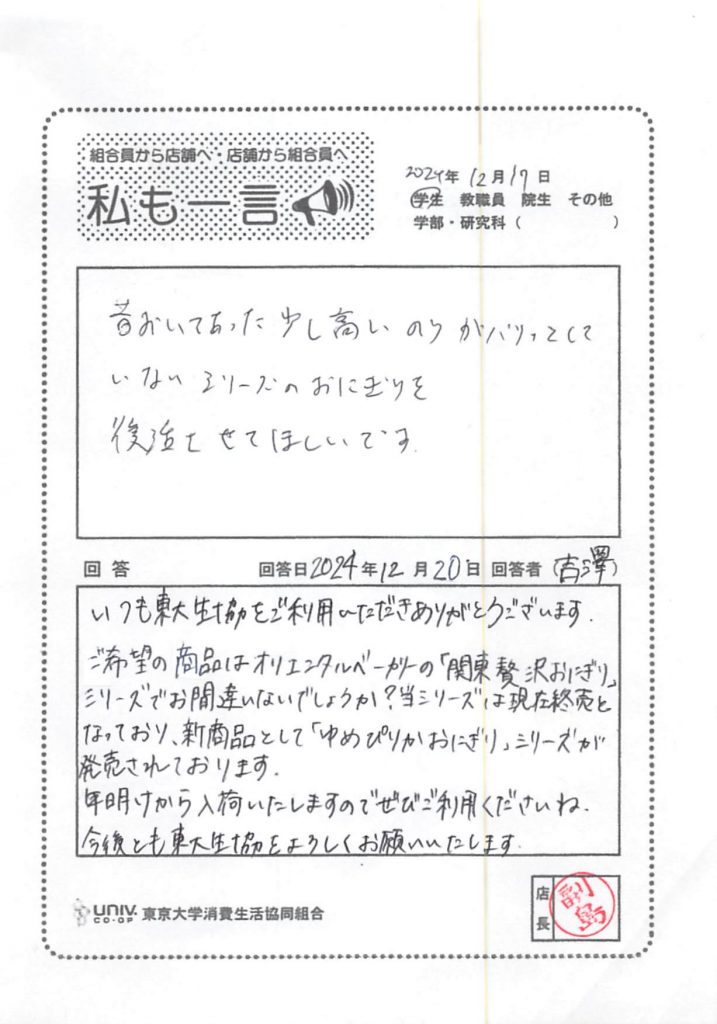 組合員から店舗へ・店舗から組合員へ
私も一言
2024年 12月17日
学生 教職員 院生 その他
学部・研究科（ ）
昔おいてあった少し高い のりがパリッとして
いない シリーズのおにぎりを
復活させてほしいです
回答 回答日2024年12月20日 回答者（吉澤）
いつも東大生協をご利用いただきありがとうございます.
ご希望の商品はオリエンタルベーカリーの「関東贅沢おにぎり」
シリーズでお間違いないでしょうか?当シリーズは現在終売と
なっており、新商品として「ゆめぴりかおにぎり」シリーズが
発売されております.
年明けから入荷いたしますのでぜひご利用くださいね.
今後とも東大生協をよろしくお願いいたします.
UNIV. CO-OP 東京大学消費生活協同組合
店長